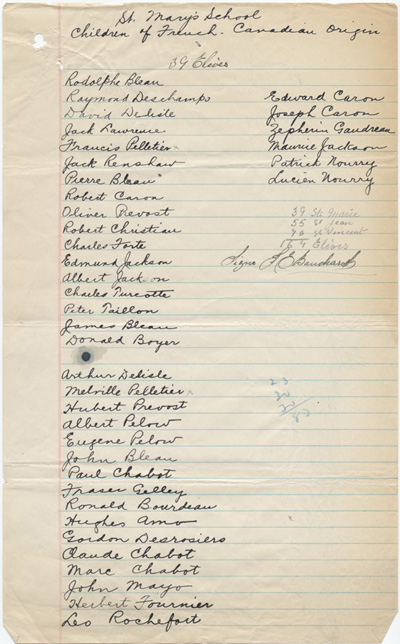 St. Mary's School
Children of French-Canadian Origin
39 Elèves
Rodolphe Bleau
Raymond Deschamps
David Delisle
Jack Lawrence
Francis Pelletier
Jack Renshaw
Pierre Bleau
Robert Caron
Oliver Prevost
Robert Christian
Charles Forte
Edmund Jackson
Albert Jackson
Charles Turcotte
Peter Taillon
James Bleau
Donald Boyer
Arthur Delisle
Melville Pelletier
Hubert Prevost
Albert Pelow
Eugene Pelow
John Bleau
Paul Chabot
Fraser Gelley
Ronald Bourdeau
Hughes Amo
Gordon Desrosiers
Claude Chabot
Marc Chabot
John Mayo
Herbert Fournier
Leo Rochefort
Edward Caron
Joseph Caron
Zepherin Gaudreau
Maurice Jackson
Patrick Nourry
Lucien Nourry
39 Ste Marie
55 St Jean
70 St Vincent
164 Elèves
Signé
23